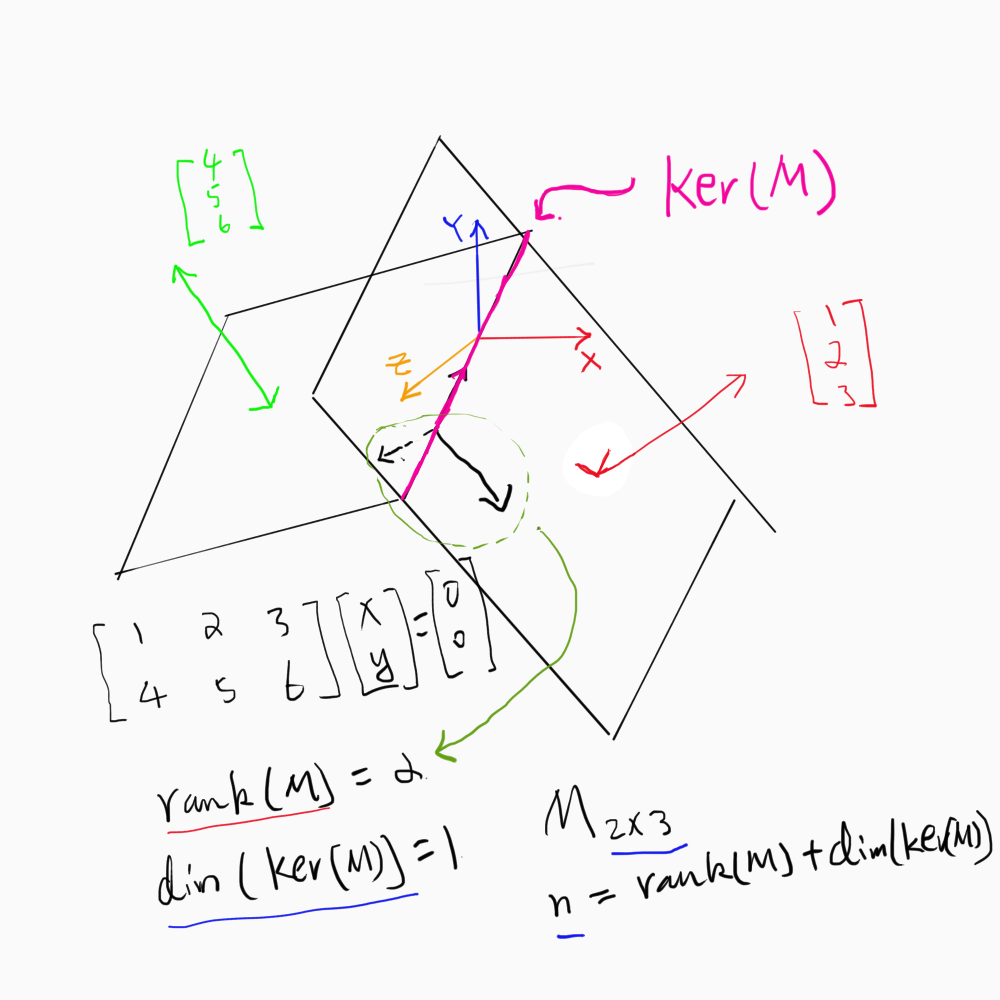 [4 5 6]
ker(M)
Y
X
Z
[1 2 3]
[1 2 3 4 5 6] [x y] = [0 0]
rank(M) = 2
dim(ker(M)) = 1
M 2x3
n = rank(M) + dim(ker(M))